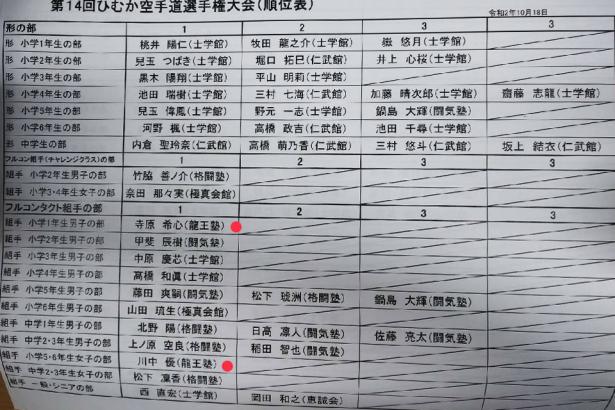 第14回ひむか空手道選手権大会(順位表)
令和2年10月18日
形の部 1 2 3 3
形 小学1年生の部 桃井 陽仁(士学館) 牧田 龍之介(士学館) 嶽 悠月(士学館)
形 小学2年生の部 兒玉 つばき(士学館) 堀口 拓巳(仁武館) 井上 心桜(士学館)
形 小学3年生の部 黒木 陽翔(士学館) 平山 明莉(士学館)
形 小学4年生の部 池田 瑞樹(士学館) 三村 七海(仁武館) 加藤 晴次郎(士学館) 齋藤 志龍(士学館)
形 小学5年生の部 兒玉 偉風(士学館) 野元 一志(士学館) 鍋島 大輝(闘気塾)
形 小学6年生の部 河野 楓(士学館) 高橋 政吉(仁武館) 池田 千尋(士学館)
形 中学生の部 内倉 聖玲奈(仁武館) 高橋 萌乃香(仁武館) 三村 悠斗(仁武館) 坂上 結衣(仁武館)
フルコン組手(チャレンジクラス)の部 1 2 3 3
組手 小学2年生男子の部 竹脇 善ノ介(格闘塾)
組手 小学3・4年生女子の部 奈田 那々実(極真会館)
フルコンタクト組手の部 1 2 3 3
組手 小学1年生男子の部 寺原 希心(龍王塾)
組手 小学2年生男子の部 甲斐 辰樹(闘気塾)
組手 小学3年生男子の部 中原 慶芯(士学館)
組手 小学4年生男子の部 高橋 和眞(士学館)
組手 小学5年生男子の部 藤田 爽嗣(闘気塾) 松下 琥洲(格闘塾) 鍋島 大輝(闘気塾)
組手 小学6年生男子の部 山田 琉生(極真会館)
組手 中学1年生男子の部 北野 陽(格闘塾) 日高 凛人(闘気塾) 佐藤 亮太(闘気塾)
組手 中学2・3年男子の部 上ノ原 空良(格闘塾) 稲田 智也(闘気塾)
組手 小学5・6年生女子の部 川中 優(龍王塾)
組手 中学2・3年生女子の部 松下 凜香(格闘塾)
組手 一般・シニアの部 西 直宏(士学館) 岡田 和之(恵誠会)